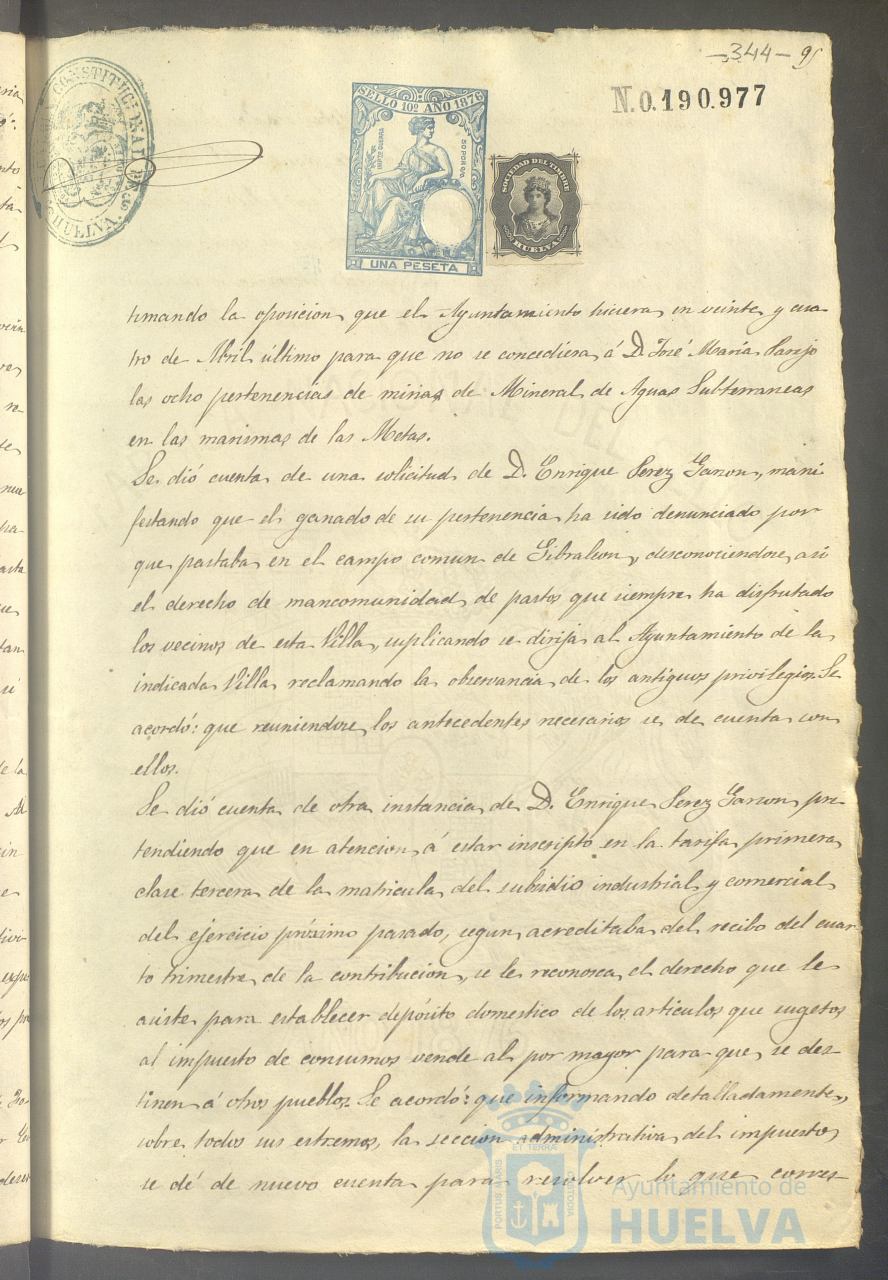 -344- 95
N.0.190.977
CONSTITUCIONAL DE
HUELVA.
SELLO 10º AÑO 1876
IMPTO GUERRA
50 POR 0/0
UNA PESETA
SOCIEDAD DEL TIMBRE
HUELVA
timando la oposicion que el Ayuntamiento hiciera en veinte y cua-
tro de Abril último para que no se concediera á D. José María Parejo
las ocho pertenencias de minas de Mineral de Aguas Subterraneas
en las marismas de las Metas.
Se dió cuenta de una solicitud de D. Enrique Perez Garzon, mani
festando que el ganado de su pertenencia ha sido denunciado por
que pastaba en el campo comun de Gibraleon, desconociendose asi
el derecho de mancomunidad de pastos que siempre ha disfrutado
los vecinos de esta Villa, suplicando se dirija al Ayuntamiento de la
indicada Villa reclamando la observancia de los antiguos privilegios. Se
acordó: que reuniendose los antecedentes necesarios se de cuenta con
ellos.
Se dió cuenta de otra instancia de D. Enrique Perez Garzon pre-
tendiendo que en atencion á estar inscripto en la tarifa primera
clase tercera de la matricula del subsidio industrial y comercial
del ejercicio próximo pasado, segun acreditaba del recibo del cuar
to trimestre de la contribucion, se le reconosca el derecho que le
asiste para establecer depósito domestico de los articulos que sugetos
al impuesto de consumos vende al por mayor para que se des-
tinen á otros pueblos. Se acordó: que informando detalladamente
sobre todos sus estremos, la seccion administrativa del impuesto
se dé de nuevo cuenta para resolver lo que corres-
ET TERRA
PORTUS MARIS
CUSTODIA
Ayuntamiento de
HUELVA